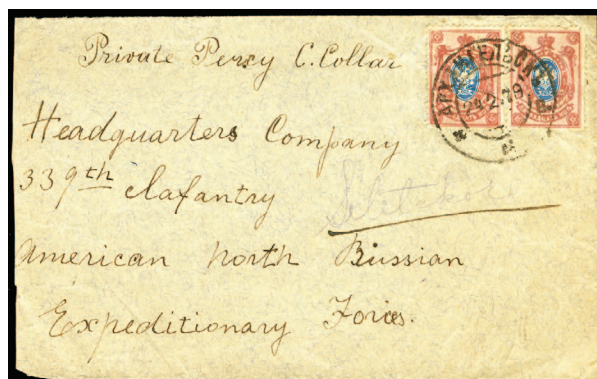 Private Persy C. Collar
Headquarters Company
339th Infantry
American North Russian
Expeditionary Forces.
24.2.19